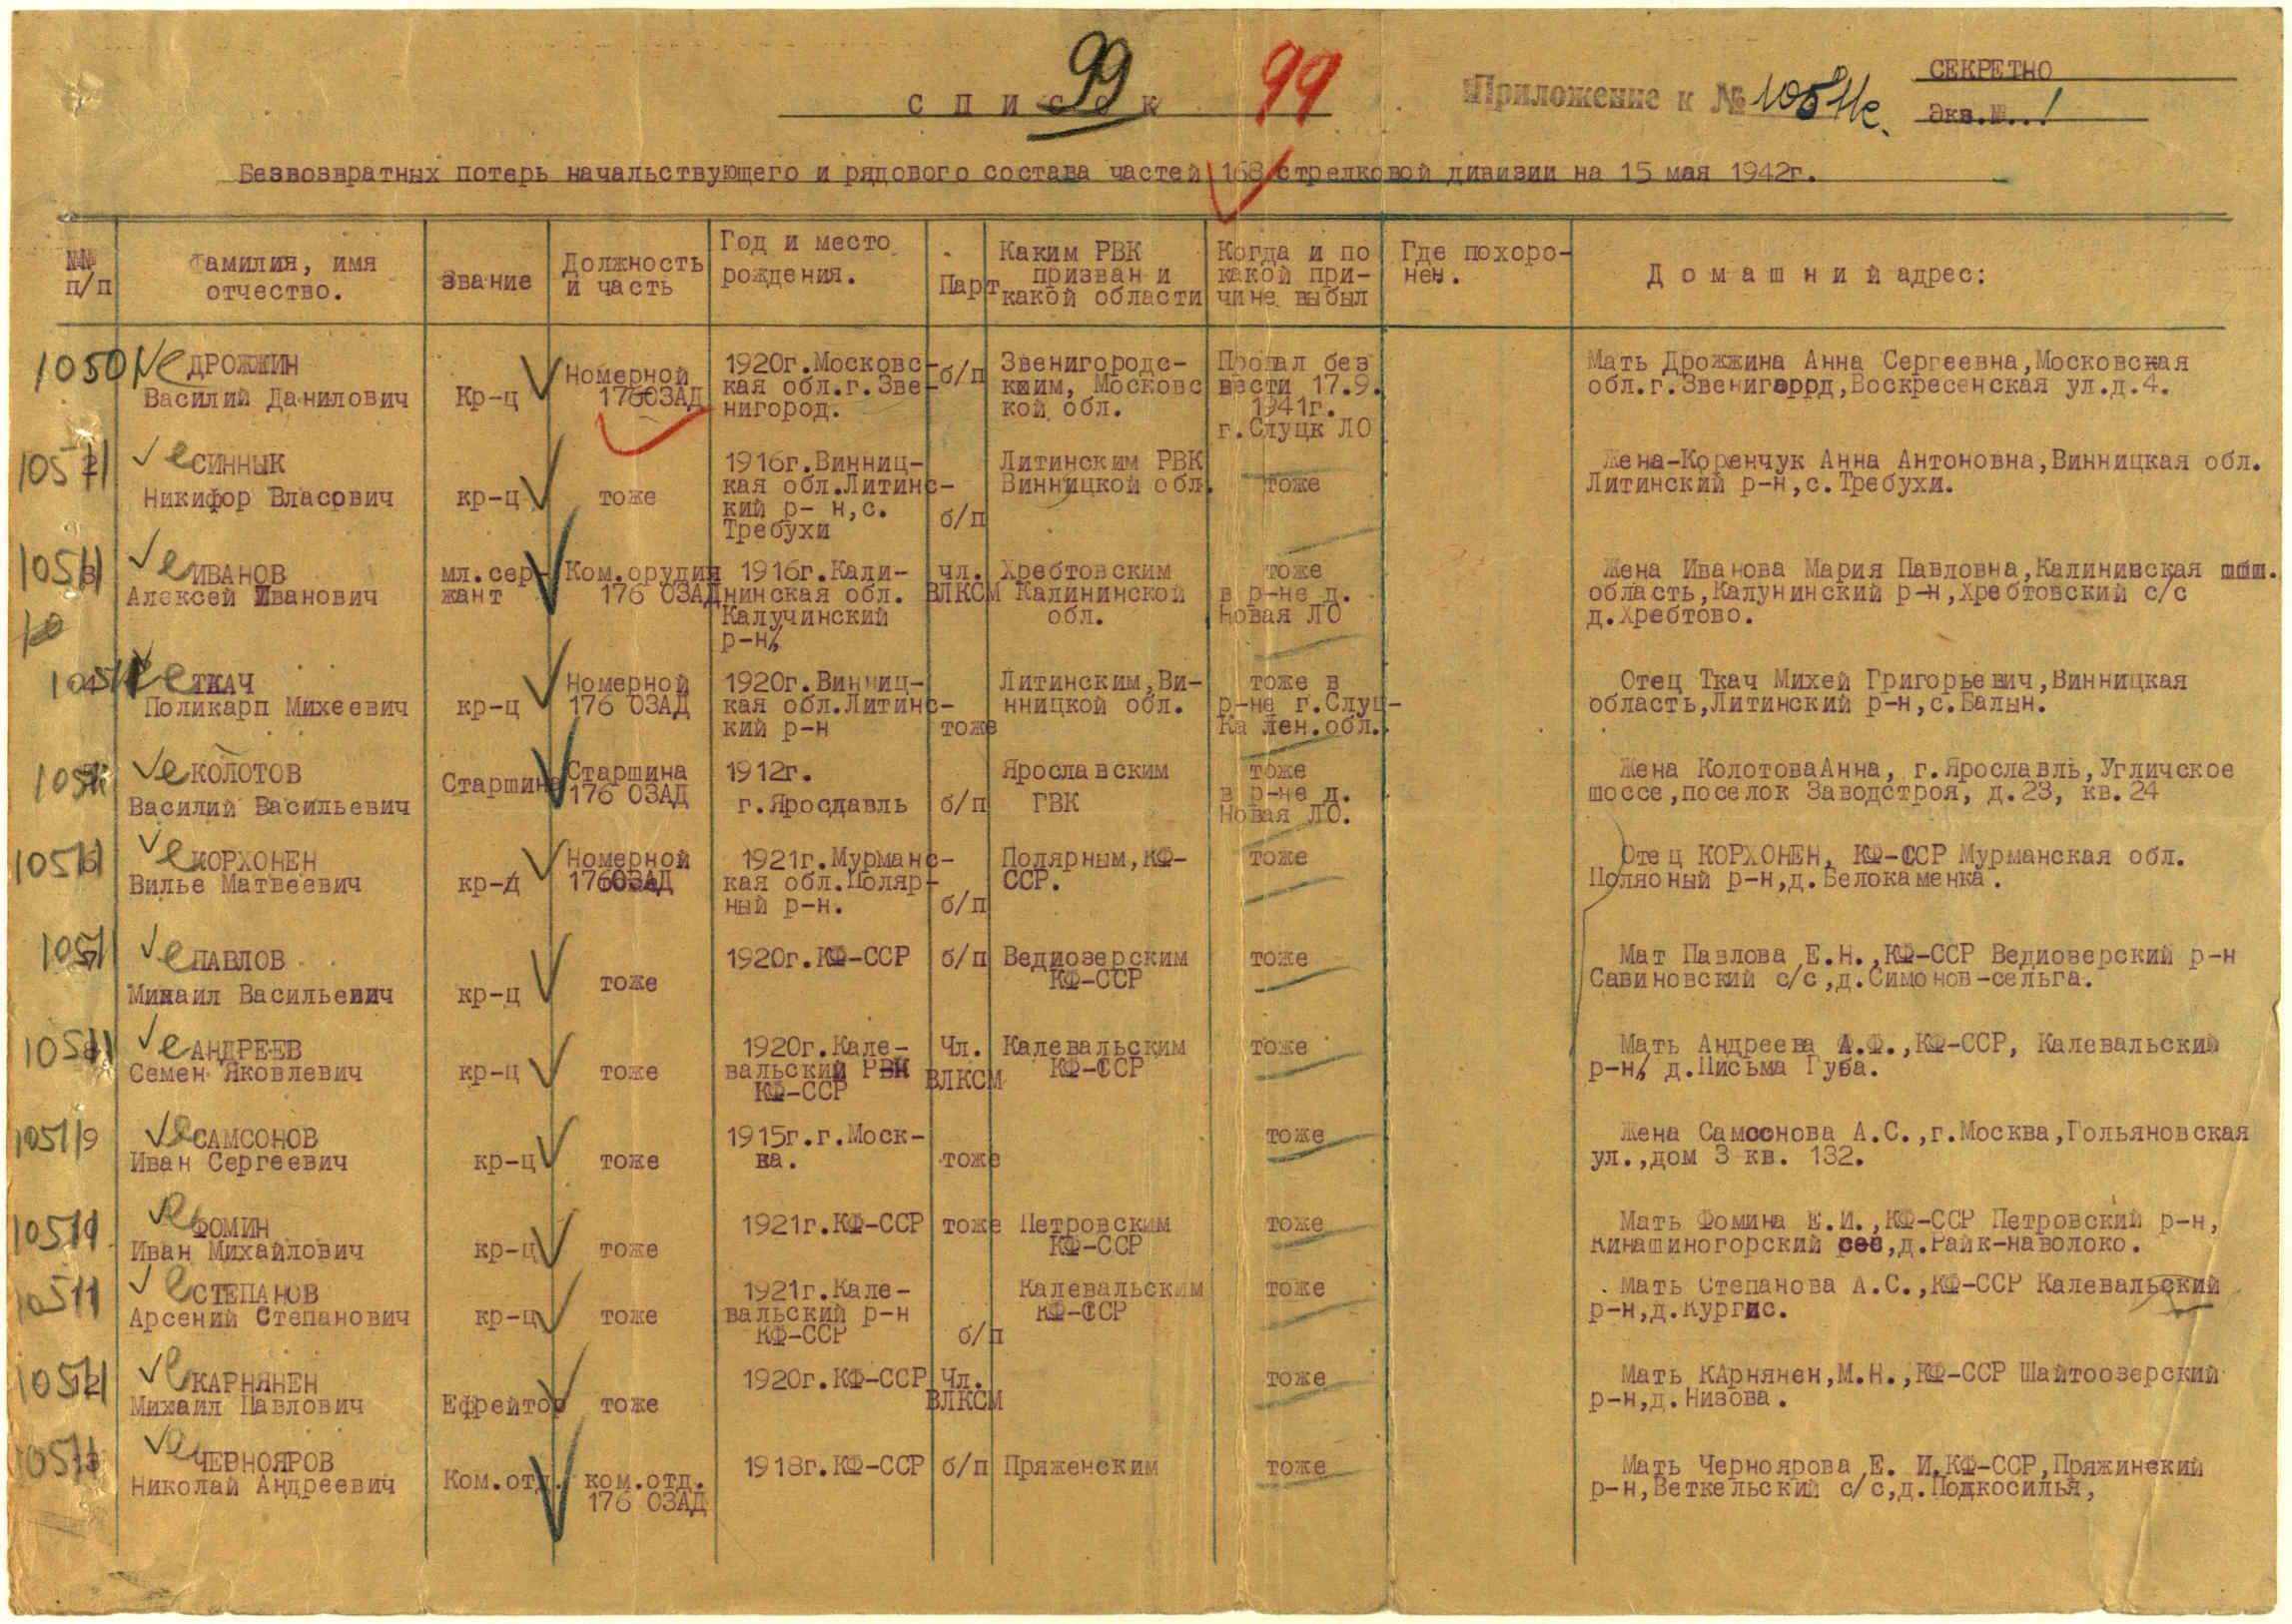 99
99
СПИСОК
Приложение к №
СЕКРЕТНО
Экв.№..1
Безвозвратных потерь начальствующего и рядового состава частей 168 стрелковой дивизии на 15 мая 1942г.
№№ п/п
Фамилия, имя отчество.
Звание
Должность и часть
Год и место рождения.
Парт
Каким РВК призван и какой области
Когда и по какой при-чине выбыл
Где похоро-нен.
Домашний адрес:
ДРОЖЖИН Василий Данилович
Кр-ц
Номерной 176ОЗАД
1920г.Московс-кая обл.г.Зве-нигород.
б/п
Звенигородс-киим, Московс кой обл.
Пропал без вести 17.9. 1941г. г.Слуцк ЛО
Мать Дрожжина Анна Сергеевна,Московская
обл.г.Звенигоррд,Воскресенская ул.д.4.
СИННЫК Никифор Власович
кр-ц
тоже
1916г.Винниц-кая обл.Литинс-кий р- н,с. Требухи
б/п
Литинским РВК Винницкой обл.
тоже
Жена-Коренчук Анна Антоновна,Винницкая обл.
Литинский р-н,с.Требухи.
ИВАНОВ Алексей Иванович
мл.сер-жант
Ком.орудия 176 ОЗАД
1916г.Кали-нинская обл. Калучинский р-н
чл. ВЛКСМ
Хребтовским Калининской обл.
тоже в р-не д. Новая ЛО
Жена Иванова Мария Павловна,Калинивская
область,Калунинский р-н,Хребтовский с/с
д.Хребтово.
ТКАЧ Поликарп Михеевич
кр-ц
Номерной 176 ОЗАД
1920г.Винниц-кая обл.Литинс-кий р-н
тоже
Литинским,Ви-нницкой обл.
тоже в р-не г.Слуц-ка Лен.обл.
Отец Ткач Михей Григорьевич,Винницкая
область,Литинский р-н,с.Балын.
КОЛОТОВ Василий Васильевич
Старшина
Старшина 176 ОЗАД
1912г. г.Яросдавль
б/п
Ярославским ГВК
тоже в р-не д. Новая ЛО.
Жена КолотоваАнна, г.Ярославль,Угличское
шоссе,поселок Заводстроя, д.23, кв.24
КОРХОНЕН Вилье Матвеевич
кр-ц
Номерной 176ОЗАД
1921г.Мурманс-кая обл.Поляр-ный р-н.
б/п
Полярным,КФ-ССР.
тоже
Отец КОРХОНЕН, КФ-ССР Мурманская обл.
Поляоный р-н,д.Белокаменка.
ПАВЛОВ Михаил Васильевич
кр-ц
тоже
1920г.КФ-ССР
б/п
Ведиозерским КФ-ССР
тоже
Мат Павлова Е.Н.,КФ-ССР Ведиоверский р-н
Савиновский с/с,д.Симонов-сельга.
АНДРЕЕВ Семен Яковлевич
кр-ц
тоже
1920г.Кале-вальский РВК КФ-ССР
Чл. ВЛКСМ
Калевальским КФ-ССР
тоже
Мать Андреева А.Ф.,КФ-ССР, Калевальский
р-н, д.Письма Губа.
САМСОНОВ Иван Сергеевич
кр-ц
тоже
1915г.г.Моск-ва.
тоже
тоже
Жена Самсонова А.С.,г.Москва,Гольяновская
ул.,дом 3 кв. 132.
ФОМИН Иван Михайлович
кр-ц
тоже
1921г.КФ-ССР
тоже
Петровским КФ-ССР
тоже
Мать Фомина Е.И.,КФ-ССР Петровский р-н,
Кинашиногорский сес,д.Райк-наволоко.
СТЕПАНОВ Арсений Степанович
кр-ц
тоже
1921г.Кале-вальский р-н КФ-ССР
б/п
Калевальским КФ-ССР
тоже
Мать Степанова А.С.,КФ-ССР Калевальский
р-н,д.Кургис.
КАРНЯНЕН Михаил Павлович
Ефрейтор
тоже
1920г.КФ-ССР
Чл. ВЛКСМ
тоже
Мать КАрнянен,М.Н.,КФ-ССР Шайтоозерский
р-н,д.Низова.
ЧЕРНОЯРОВ Николай Андреевич
Ком.отд.
ком.отд. 176 ОЗАД
1918г.КФ-ССР
б/п
Пряженским
тоже
Мать Черноярова Е. И.КФ-ССР,Пряжинский
р-н,Веткельский с/с,д.Подкосилья,